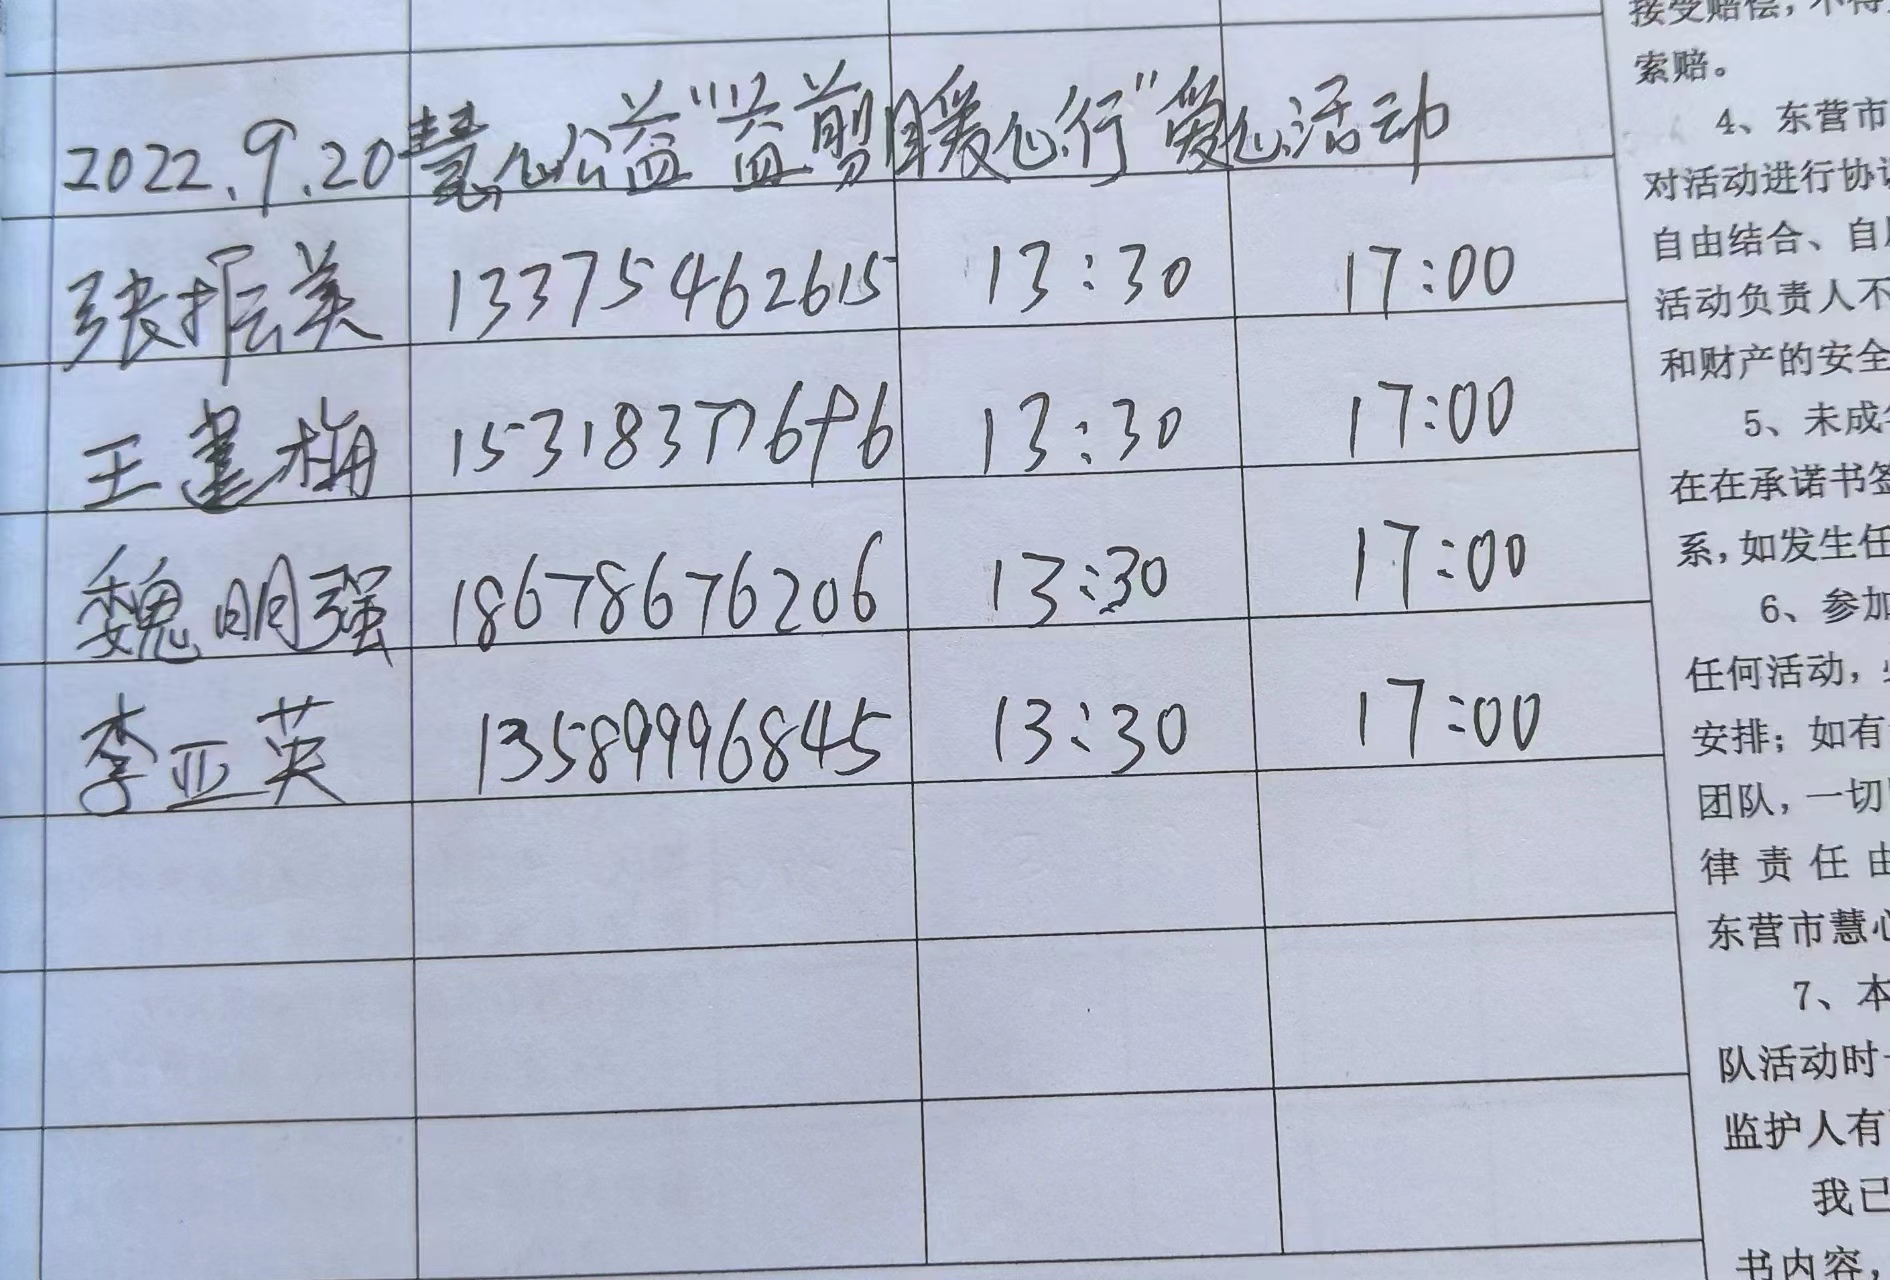 2022.9.20慧心公益"益剪暖心行"爱心活动
张振英 13375462615 13:30 17:00
王建梅 15318377696 13:30 17:00
魏明强 18678676206 13:30 17:00
李亚英 13589996845 13:30 17:00
接受赔偿，不得
索赔。
4、东营市
对活动进行协议
自由结合、自
活动负责人不
和财产的安全
5、未成年
在在承诺书签
系，如发生任
6、参加
任何活动，
安排；如有
团队，一切
律责任由
东营市慧心
7、本
队活动时
监护人有
我已
书内容，